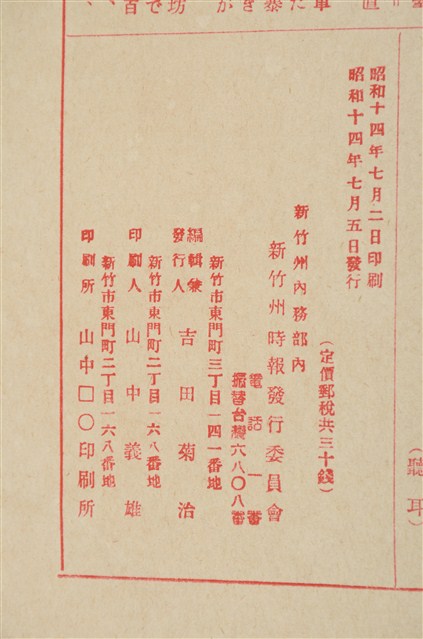 聽耳)
昭和十四年七月二日印刷
昭和十四年七月五日發行
(定價郵稅共三十錢)
新竹州內務部內
新竹州時報發行委員會
電話一番
振替台灣六八〇八番
新竹市東門町三丁目一四一番地
編輯兼
發行人 吉田菊治
新竹市東門町二丁目一六八番地
印刷人 山中義雄
新竹市東門町二丁目一六八番地
印刷所 山中口〇印刷所